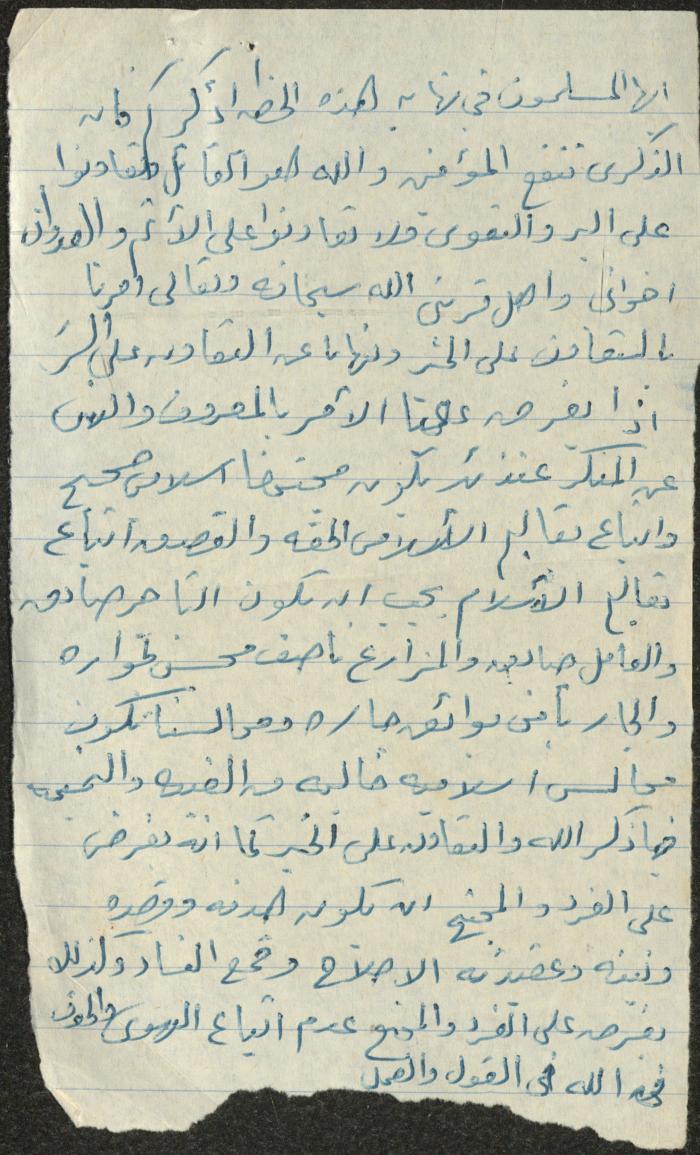 ايها المسلمون في نهاية هذه الخطبه اذكركم فان
الذكرى تنفع المؤمنين والله هو القائل وتعاونوا
على البر والتقوى ولا تعاونوا على الاثم والعدوان
اخواني واهل قريتي الله سبحانه وتعالى امرنا
بالتعاون على الخير ونهانا عن التعاون على الشر
اذا يفرض علينا الأمر بالمعروف والنهي
عن المنكر عندئذ يكون مجتمعنا اسلامي صحيح
واتباع تعاليم الأسلام الحقه والقصد من اتباع
تعاليم الأسلام يجب ان يكون التاجر صادق
والعامل صادق والمزارع ناصف محسن لجواره
والجار يأمن بوائق جاره ومجالسنا تكون
مجالس اسلاميه خاليه من الغيبه والنميمه
فيها ذكر الله والتعاون على الخير كما انه يفرض
على الفرد والمجتمع ان يكون هدفه وقصده
ونيته وعقيدته الاصلاح وقمع الفساد وكذلك
يفرض على الفرد والمجتمع عدم اتباع الهوى والخوف
من الله في القول والعمل